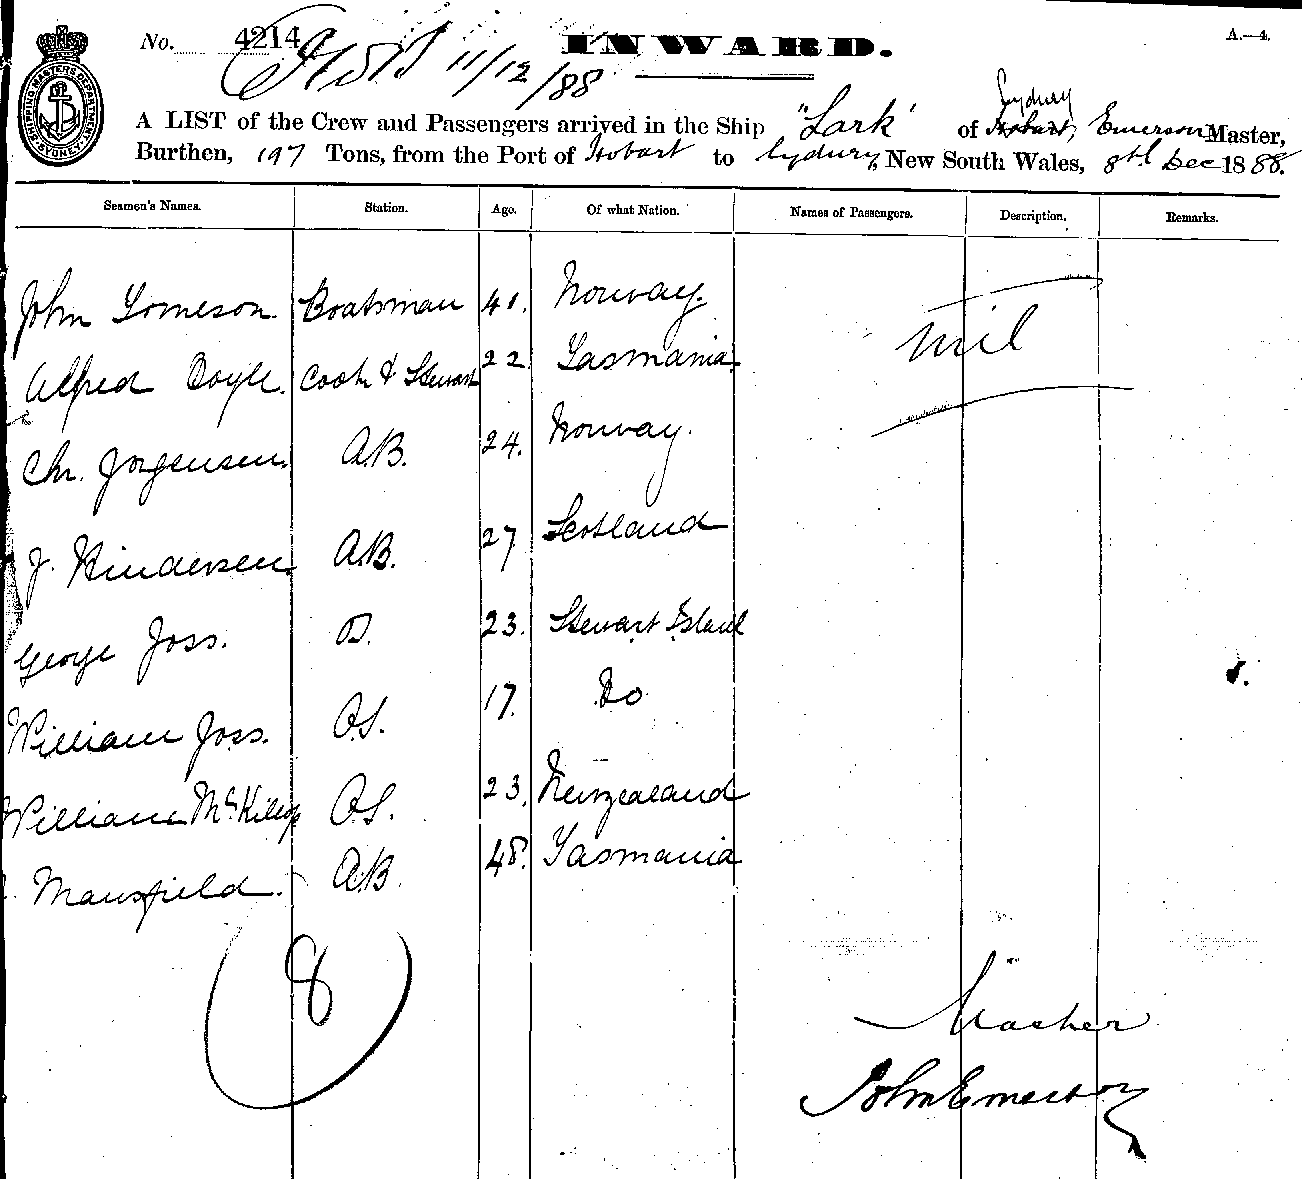 No. 4214 INWARD. A.—4.
11/12/88
SHIPPING MASTERS DEPARTMENT SYDNEY
Sydney
A LIST of the Crew and Passengers arrived in the Ship "Lark" of Hobart, Emerson Master,
Burthen, 197 Tons, from the Port of Hobart to Sydney, New South Wales, 8th Dec 1888.
Seamen's Names. Station. Age. Of what Nation. Names of Passengers. Description. Remarks.
John Tomeson. Boatsman 41. Norway. nil
Alfred Boyle. Cook & Steward 22 Tasmania.
Chr. Jorgensen. A.B. 24. Norway.
J. Hindersen A.B. 27 Scotland
George Joss. 23. Stewart Island
William Joss. O.S. 17. Do
William McKillop O.S. 23. Newzealand
Mansfield. A.B. 48. Tasmania
8
Master
John Emerson